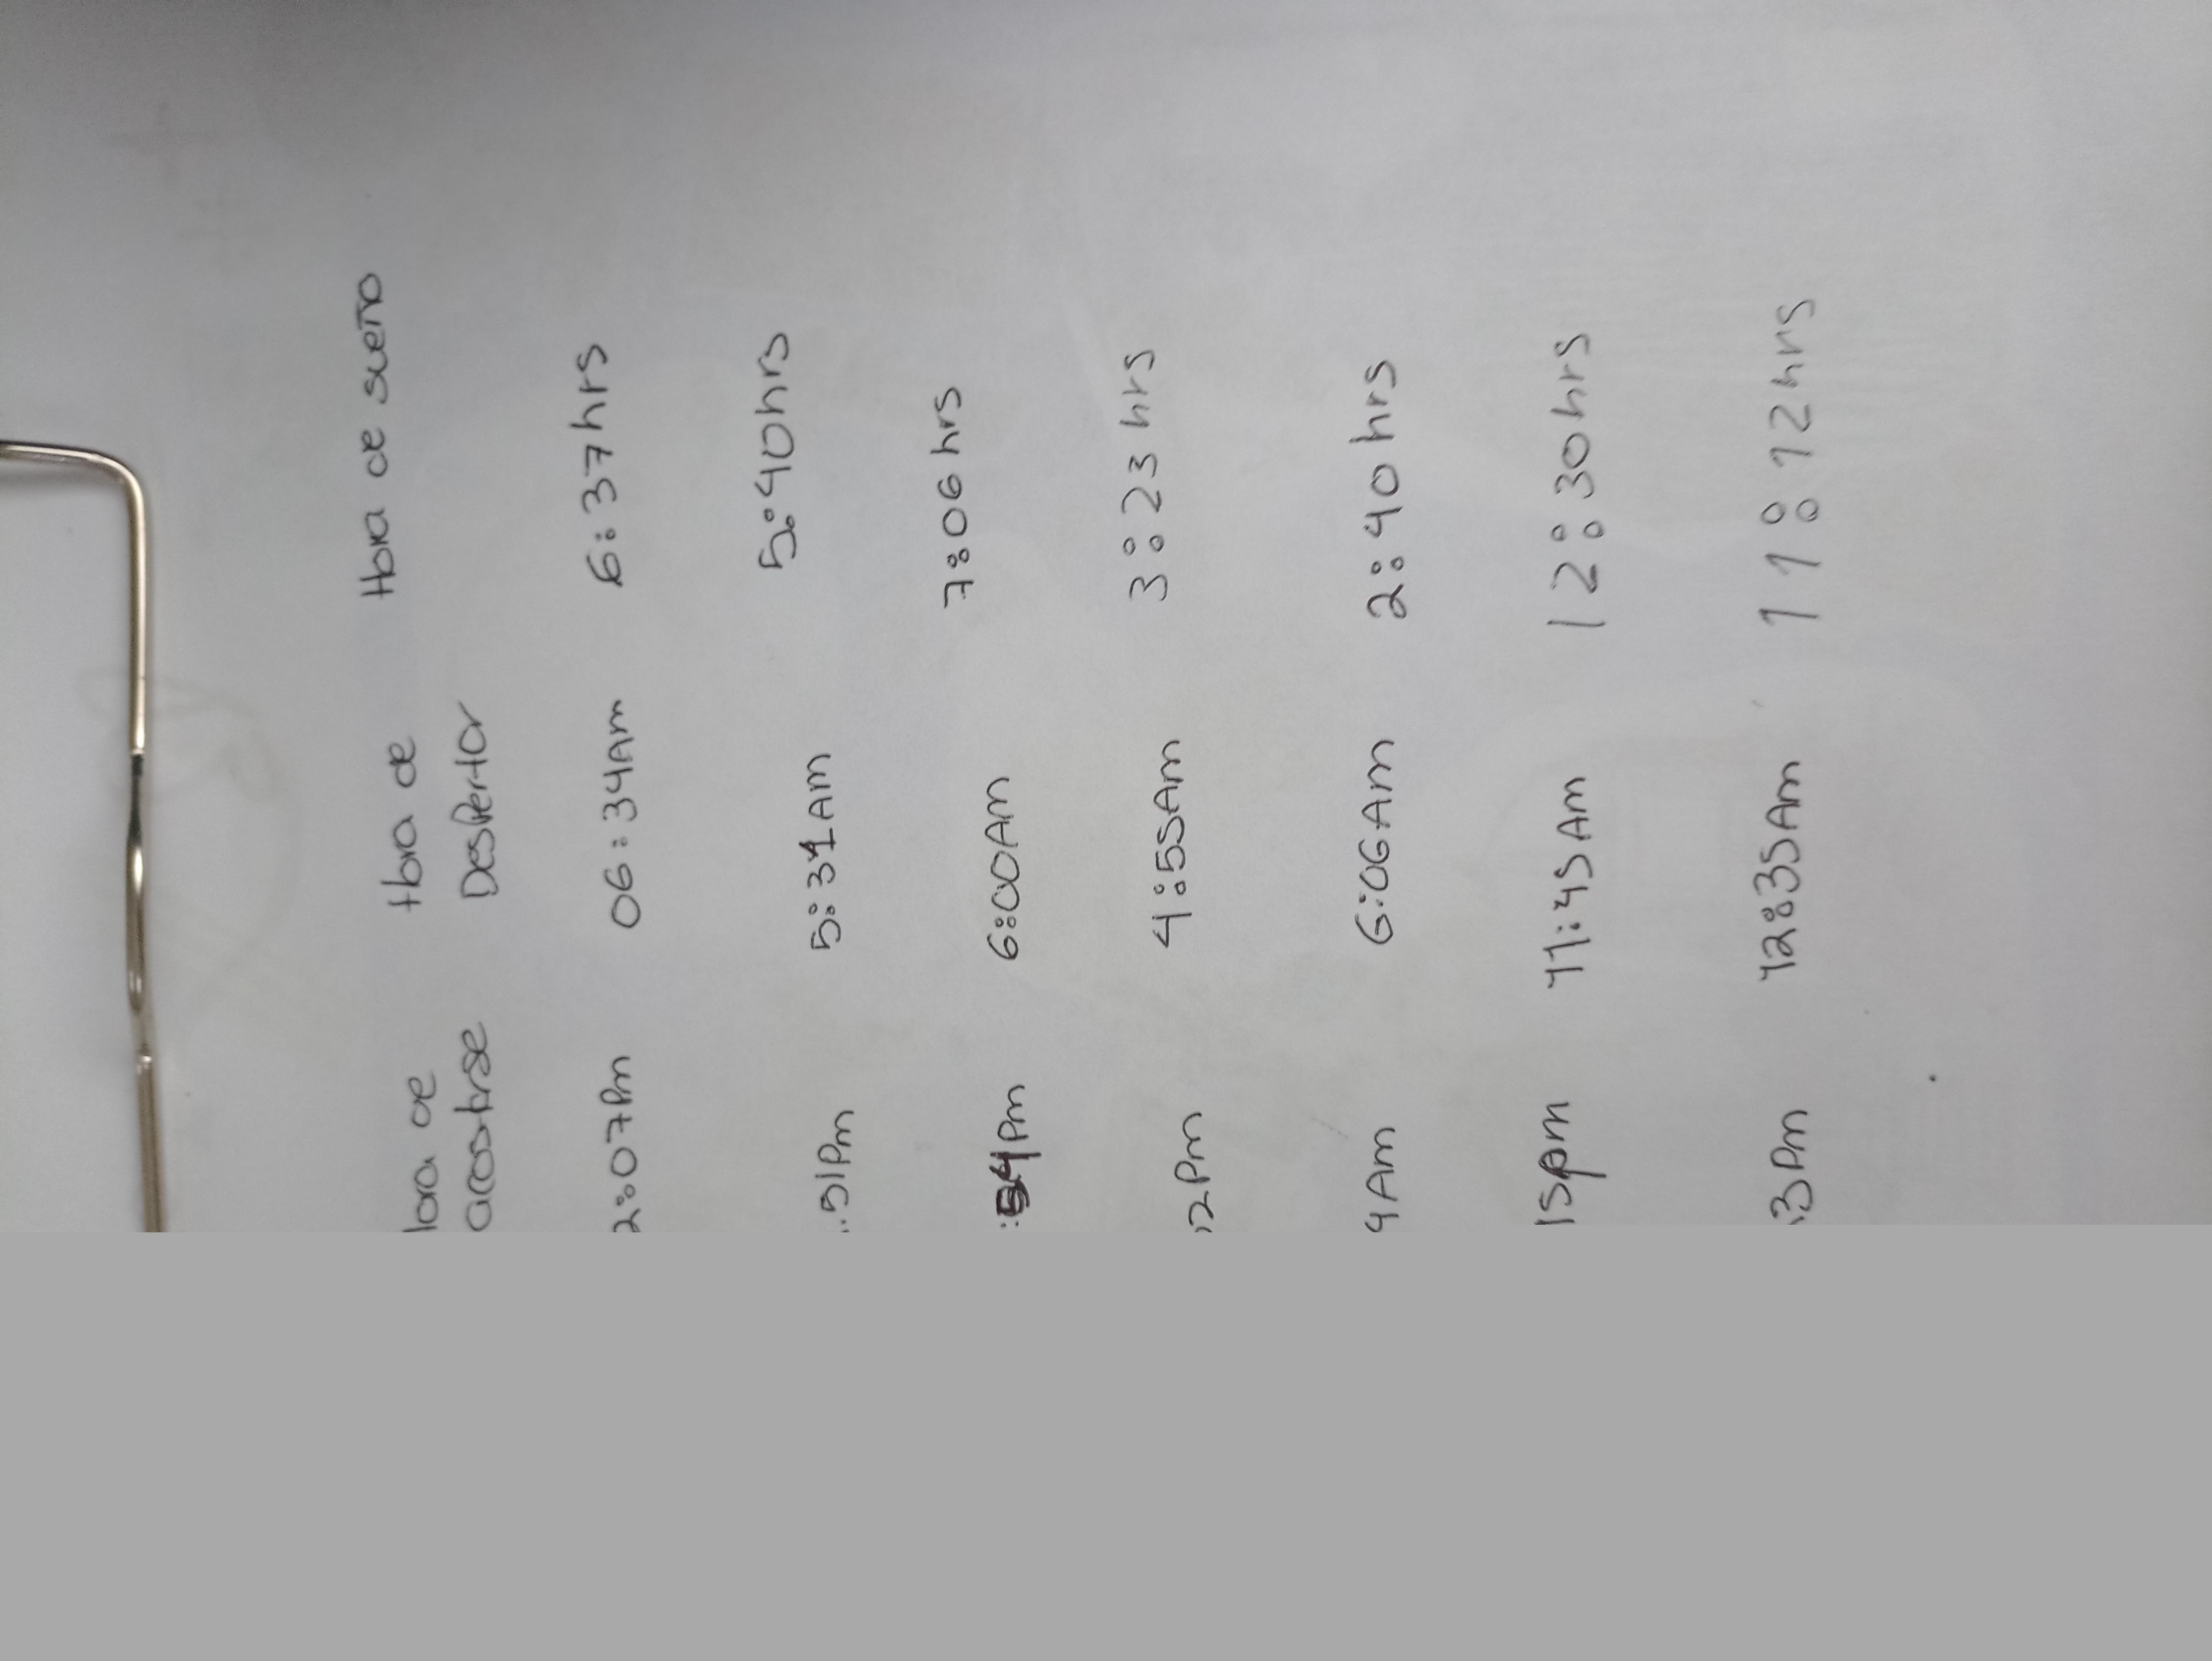 Hora de Hora de Hora de sueño
acostarse Despertar
2:07Pm 06:34Am 6:37hrs
51Pm 5:31AM 5:40hrs
:54Pm 6:00AM 7:06 hrs
2Pm 4:55Am 3:23 hrs
4Am 6:06Am 2:40 hrs
15pm 11:45Am 12:30hrs
3Pm 12:35Am 11:12hrs